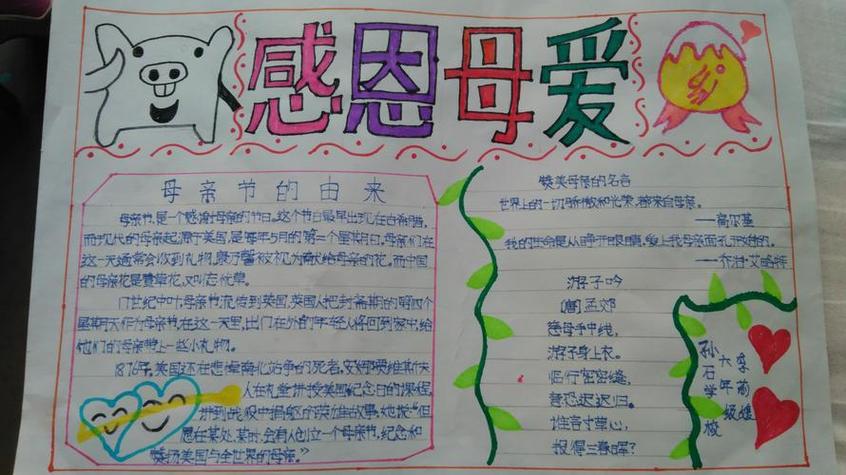 感恩母爱
母亲节的由来
母亲节,是一个感谢母亲的节日。这个节日最早出现在古希腊,
而现代的母亲起源于美国,是每年5月的第二个星期日。母亲们在
这一天通常会收到礼物,康乃馨被视为献给母亲的花。而中国
的母亲花是萱草花,又叫忘忧草。
17世纪中叶,母亲节流传到英国,英国人把封斋期的第四个
星期天作为母亲节。在这一天里,出门在外的年轻人将回到家中,给
他们的母亲带上一些小礼物。
1876年,美国还在悲悼南北战争的死者,安娜
人在礼堂讲授美国纪念日的课程,
讲到战役中捐躯的英雄故事,她说:"但
愿在某处,某时,会有人创立一个母亲节,纪念和
赞扬美国与全世界的母亲。"
赞美母亲的名言
世界上的一切骄傲和光荣,都来自母亲。
——高尔基
我的生命是从睁开眼睛,爱上我母亲面孔开始的。
——乔治·艾略特
游子吟
唐 孟郊
慈母手中线,
游子身上衣。
临行密密缝,
意恐迟迟归。
谁言寸草心,
报得三春晖?
石学校
六年级
孙